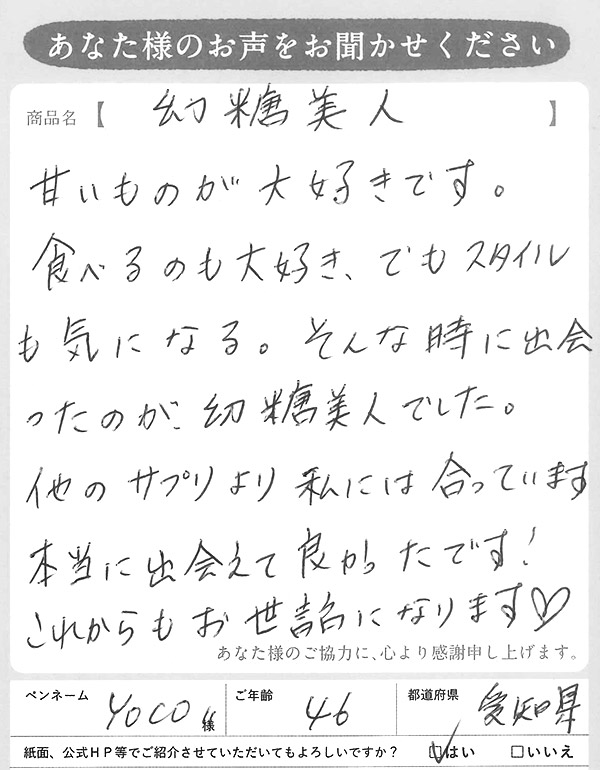 あなた様のお声をお聞かせください
商品名【 幼糖美人 】
甘いものが大好きです。
食べるのも大好き、でもスタイル
も気になる。そんな時に出会
ったのが、幼糖美人でした。
他のサプリより私には合っています
本当に出会えて良かったです!
これからもお世話になります♡
あなた様のご協力に、心より感謝申し上げます。
ペンネーム YOCO 様 ご年齢 46 都道府県 愛知県
紙面、公式HP等でご紹介させていただいてもよろしいですか? ☑はい □いいえ